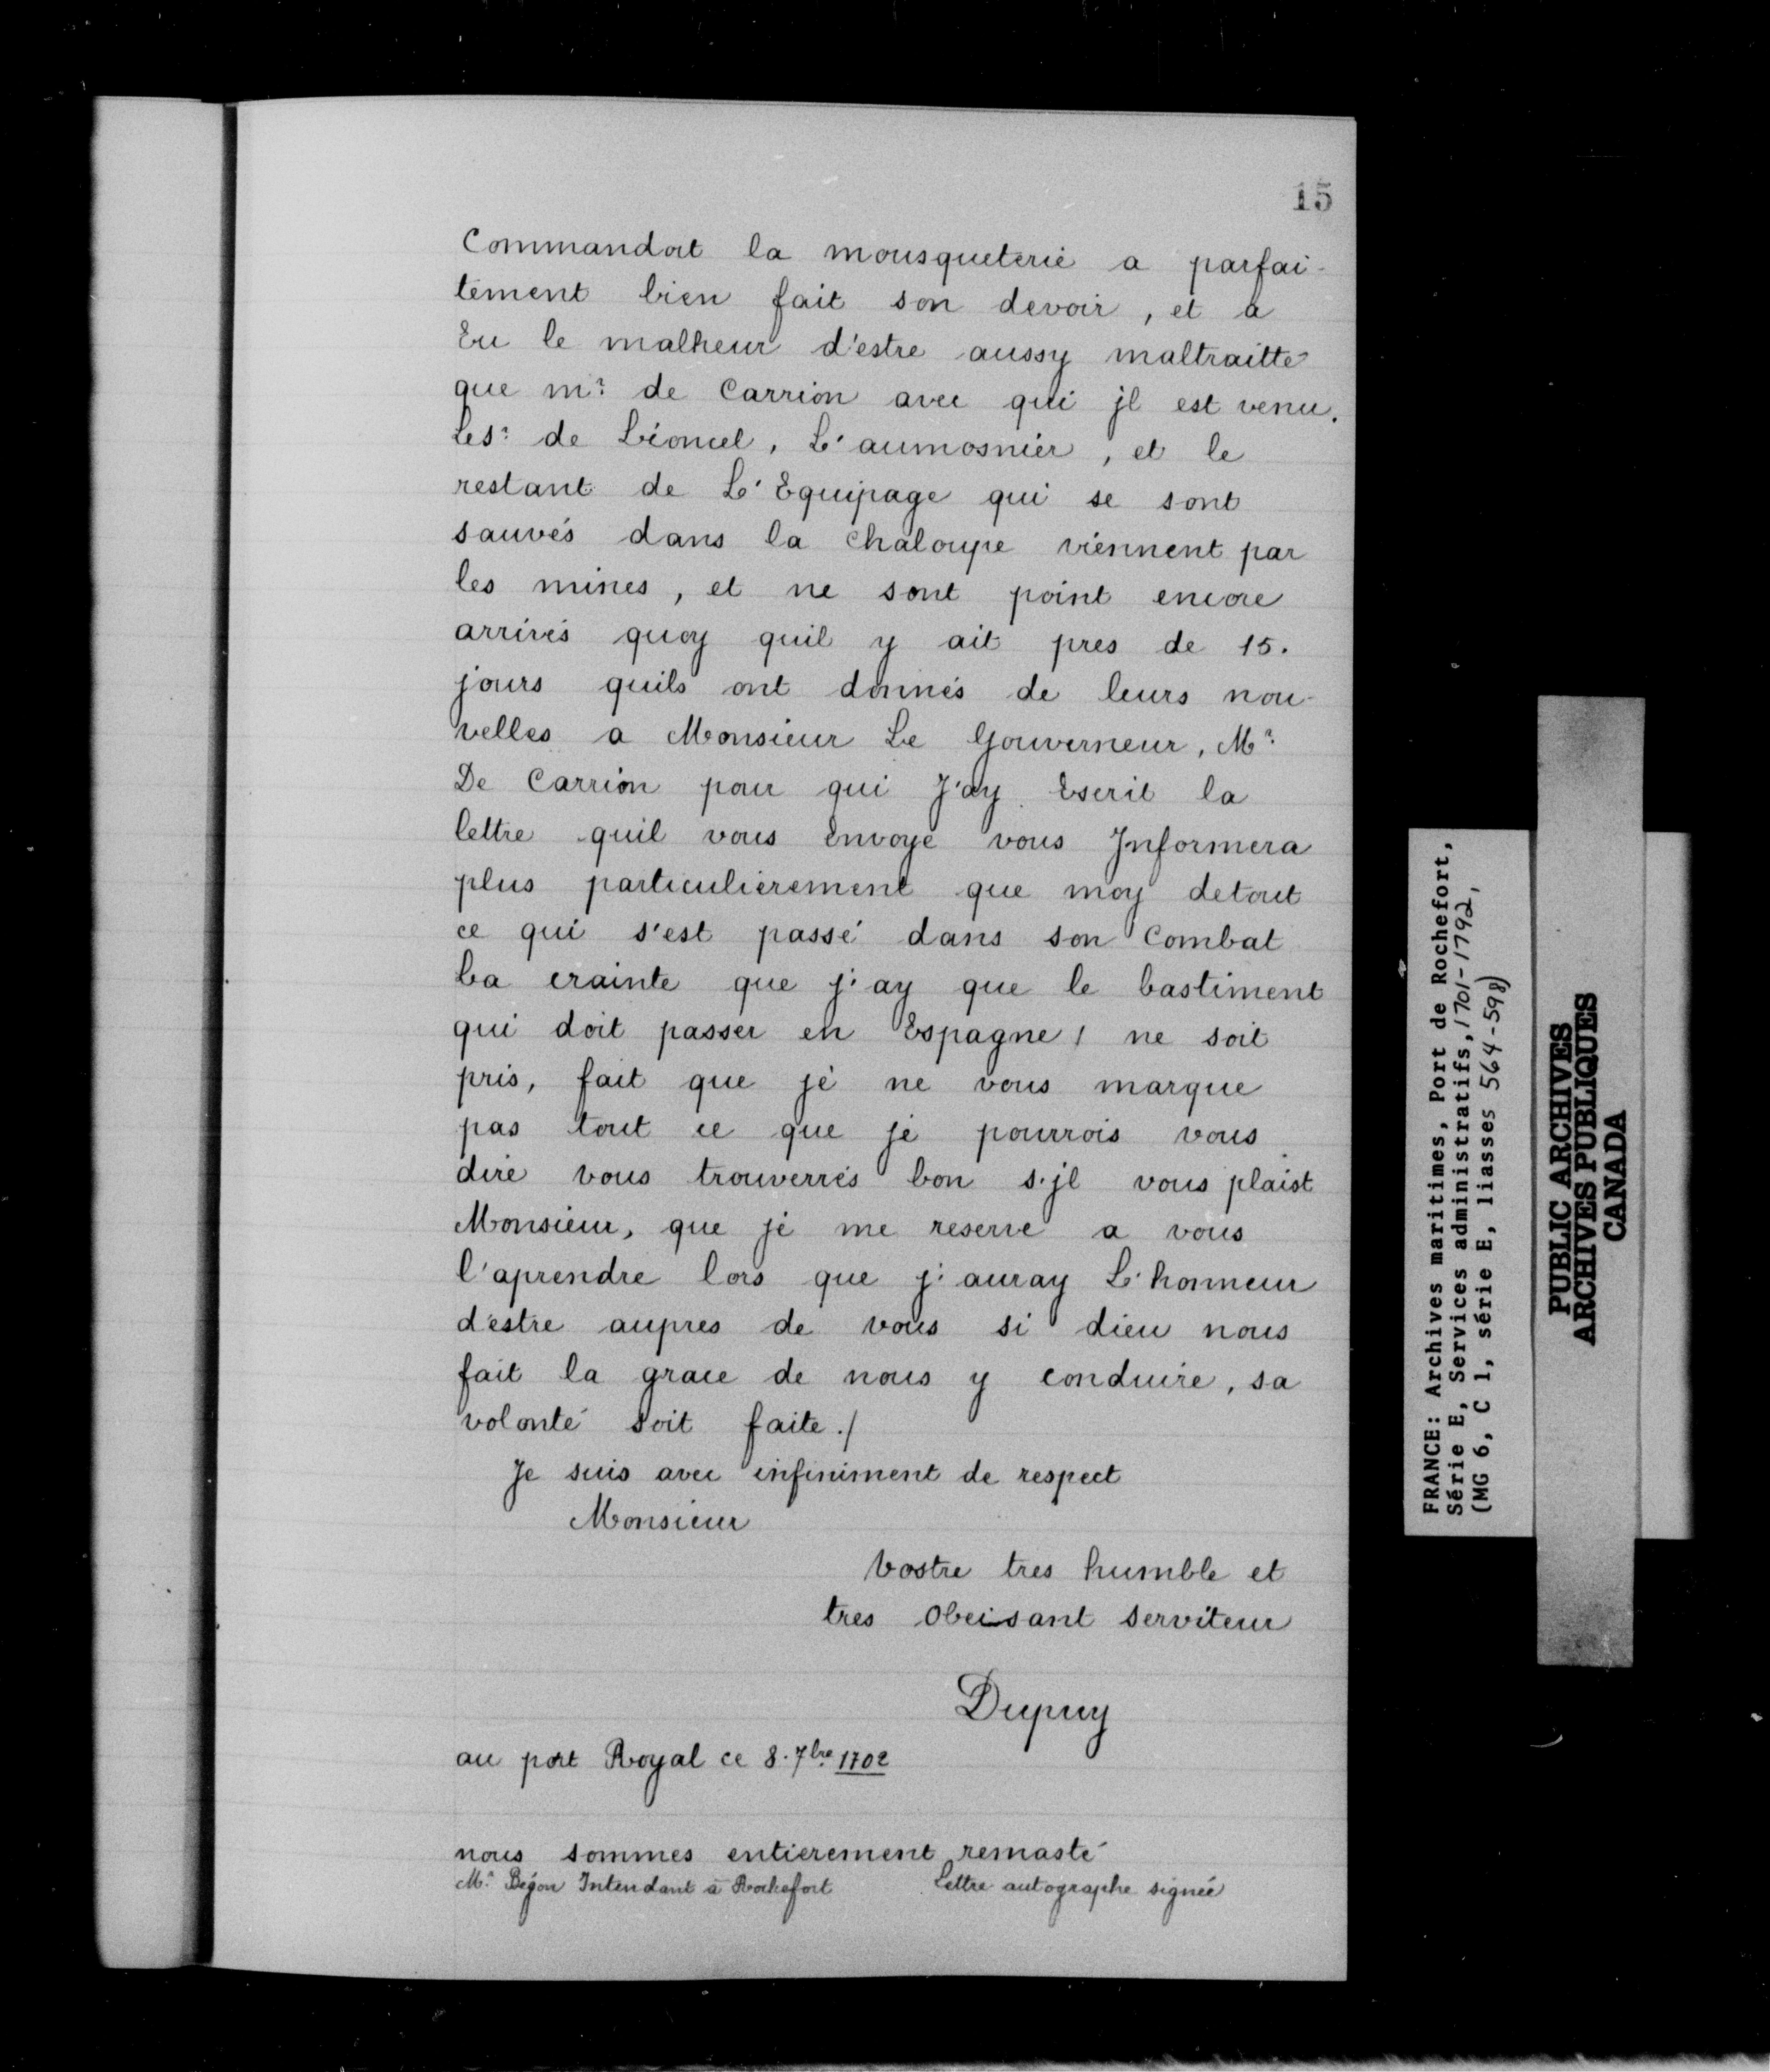 15
Commandoit la mousqueterie a parfai-
tement bien fait son devoir, et a
Eu le malheur d'estre aussy maltraitté
que mr. de Carrion avec qui jl est venu.
Le sr. de Léoncel, L'aumosnier, et le
restant de L'Equipage qui se sont
sauvés dans la chaloupe viennent par
les mines, et ne sont point encore
arrivés quoy quil y ait pres de 15.
jours quils ont donnés de leurs nou-
velles a Monsieur Le Gouverneur, Mr.
De Carrion pour qui J'ay Escrit la
lettre quil vous Envoye vous Jnformera
plus particulierement que moy detout
ce qui s'est passé dans son Combat
La crainte que j'ay que le bastiment
qui doit passer en Espagne / ne soit
pris, fait que je ne vous marque
pas tout ce que je pourrois vous
dire vous trouverrés bon s'jl vous plaist
Monsieur, que je me reserve a vous
l'aprendre lors que j'auray L'honneur
d'estre aupres de vous si dieu nous
fait la grace de nous y conduire, sa
volonté soit faite ./
Je suis avec infiniment de respect
Monsieur
Vostre tres humble et
tres Obeissant serviteur
Dupuy
au port Royal ce 8. 7bre 1702
nous sommes entierement remasté
Mr. Bégon Intendant à Rochefort Lettre autographe signée
FRANCE: Archives maritimes, Port de Rochefort,
Série E, Services administratifs, 1701-1792,
(MG 6, C 1, série E, liasses 564-598)
PUBLIC ARCHIVES
ARCHIVES PUBLIQUES
CANADA